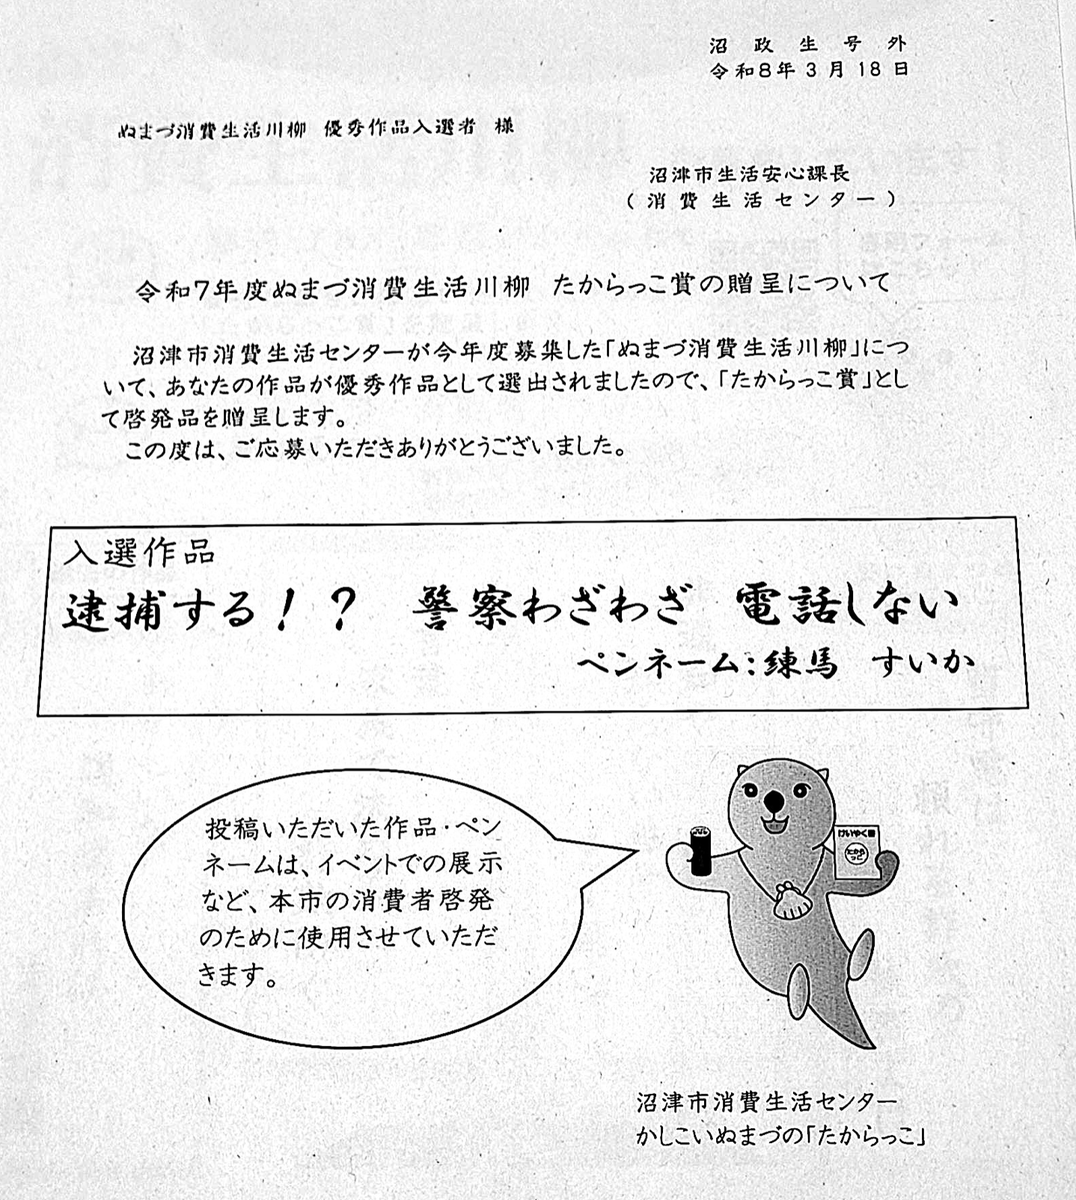 沼政生号外
令和8年3月18日
ぬまづ消費生活川柳 優秀作品入選者 様
沼津市生活安心課長
(消費生活センター)
令和7年度ぬまづ消費生活川柳 たからっこ賞の贈呈について
沼津市消費生活センターが今年度募集した「ぬまづ消費生活川柳」につ
いて、あなたの作品が優秀作品として選出されましたので、「たからっこ賞」とし
て啓発品を贈呈します。
この度は、ご応募いただきありがとうございました。
入選作品
逮捕する!? 警察わざわざ 電話しない
ペンネーム:練馬 すいか
投稿いただいた作品・ペン
ネームは、イベントでの展示
など、本市の消費者啓発
のために使用させていただ
きます。
けいやく書
たから
っこ
沼津市消費生活センター
かしこいぬまづの「たからっこ」